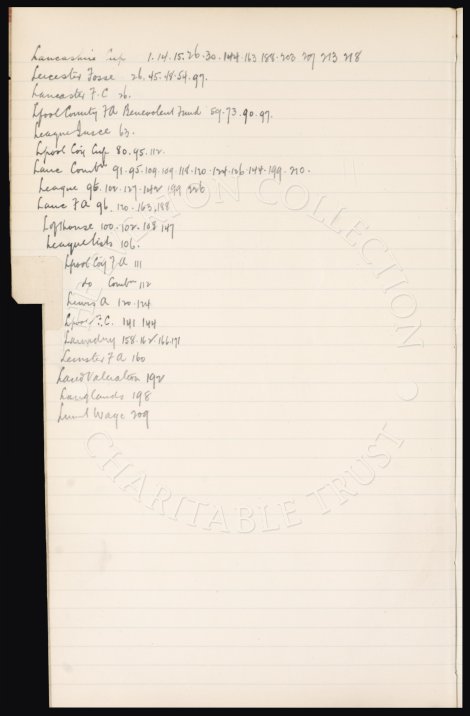 Lancashire Cup 1.14.15.26.30.144.163.188.203.207 213 218
Leicester Fosse 26.45.48.54.97.
Lancaster F.C 26.
Lpool County FA Benevolent Fund 59.73.90.97.
League 63.
Lpool Coy Cup 80.95.112.
Lanc Combn 91.95.109.109.118.120.124.126.144.199.210.
League 96.102.127.142 199 226
Lanc FA 96.120.163.188
Lofthouse 100.102.108 147
League lists 106.
Lpool Coy F.A 111
do Combn 112
Lewis A 120.124
Lpool F.C. 141 144
Laundry 158.162 166.171
Leinster F A 160
Land Valuation 192
Langlands 198
Wage 209
COLLECTION
CHARITABLE TRUST